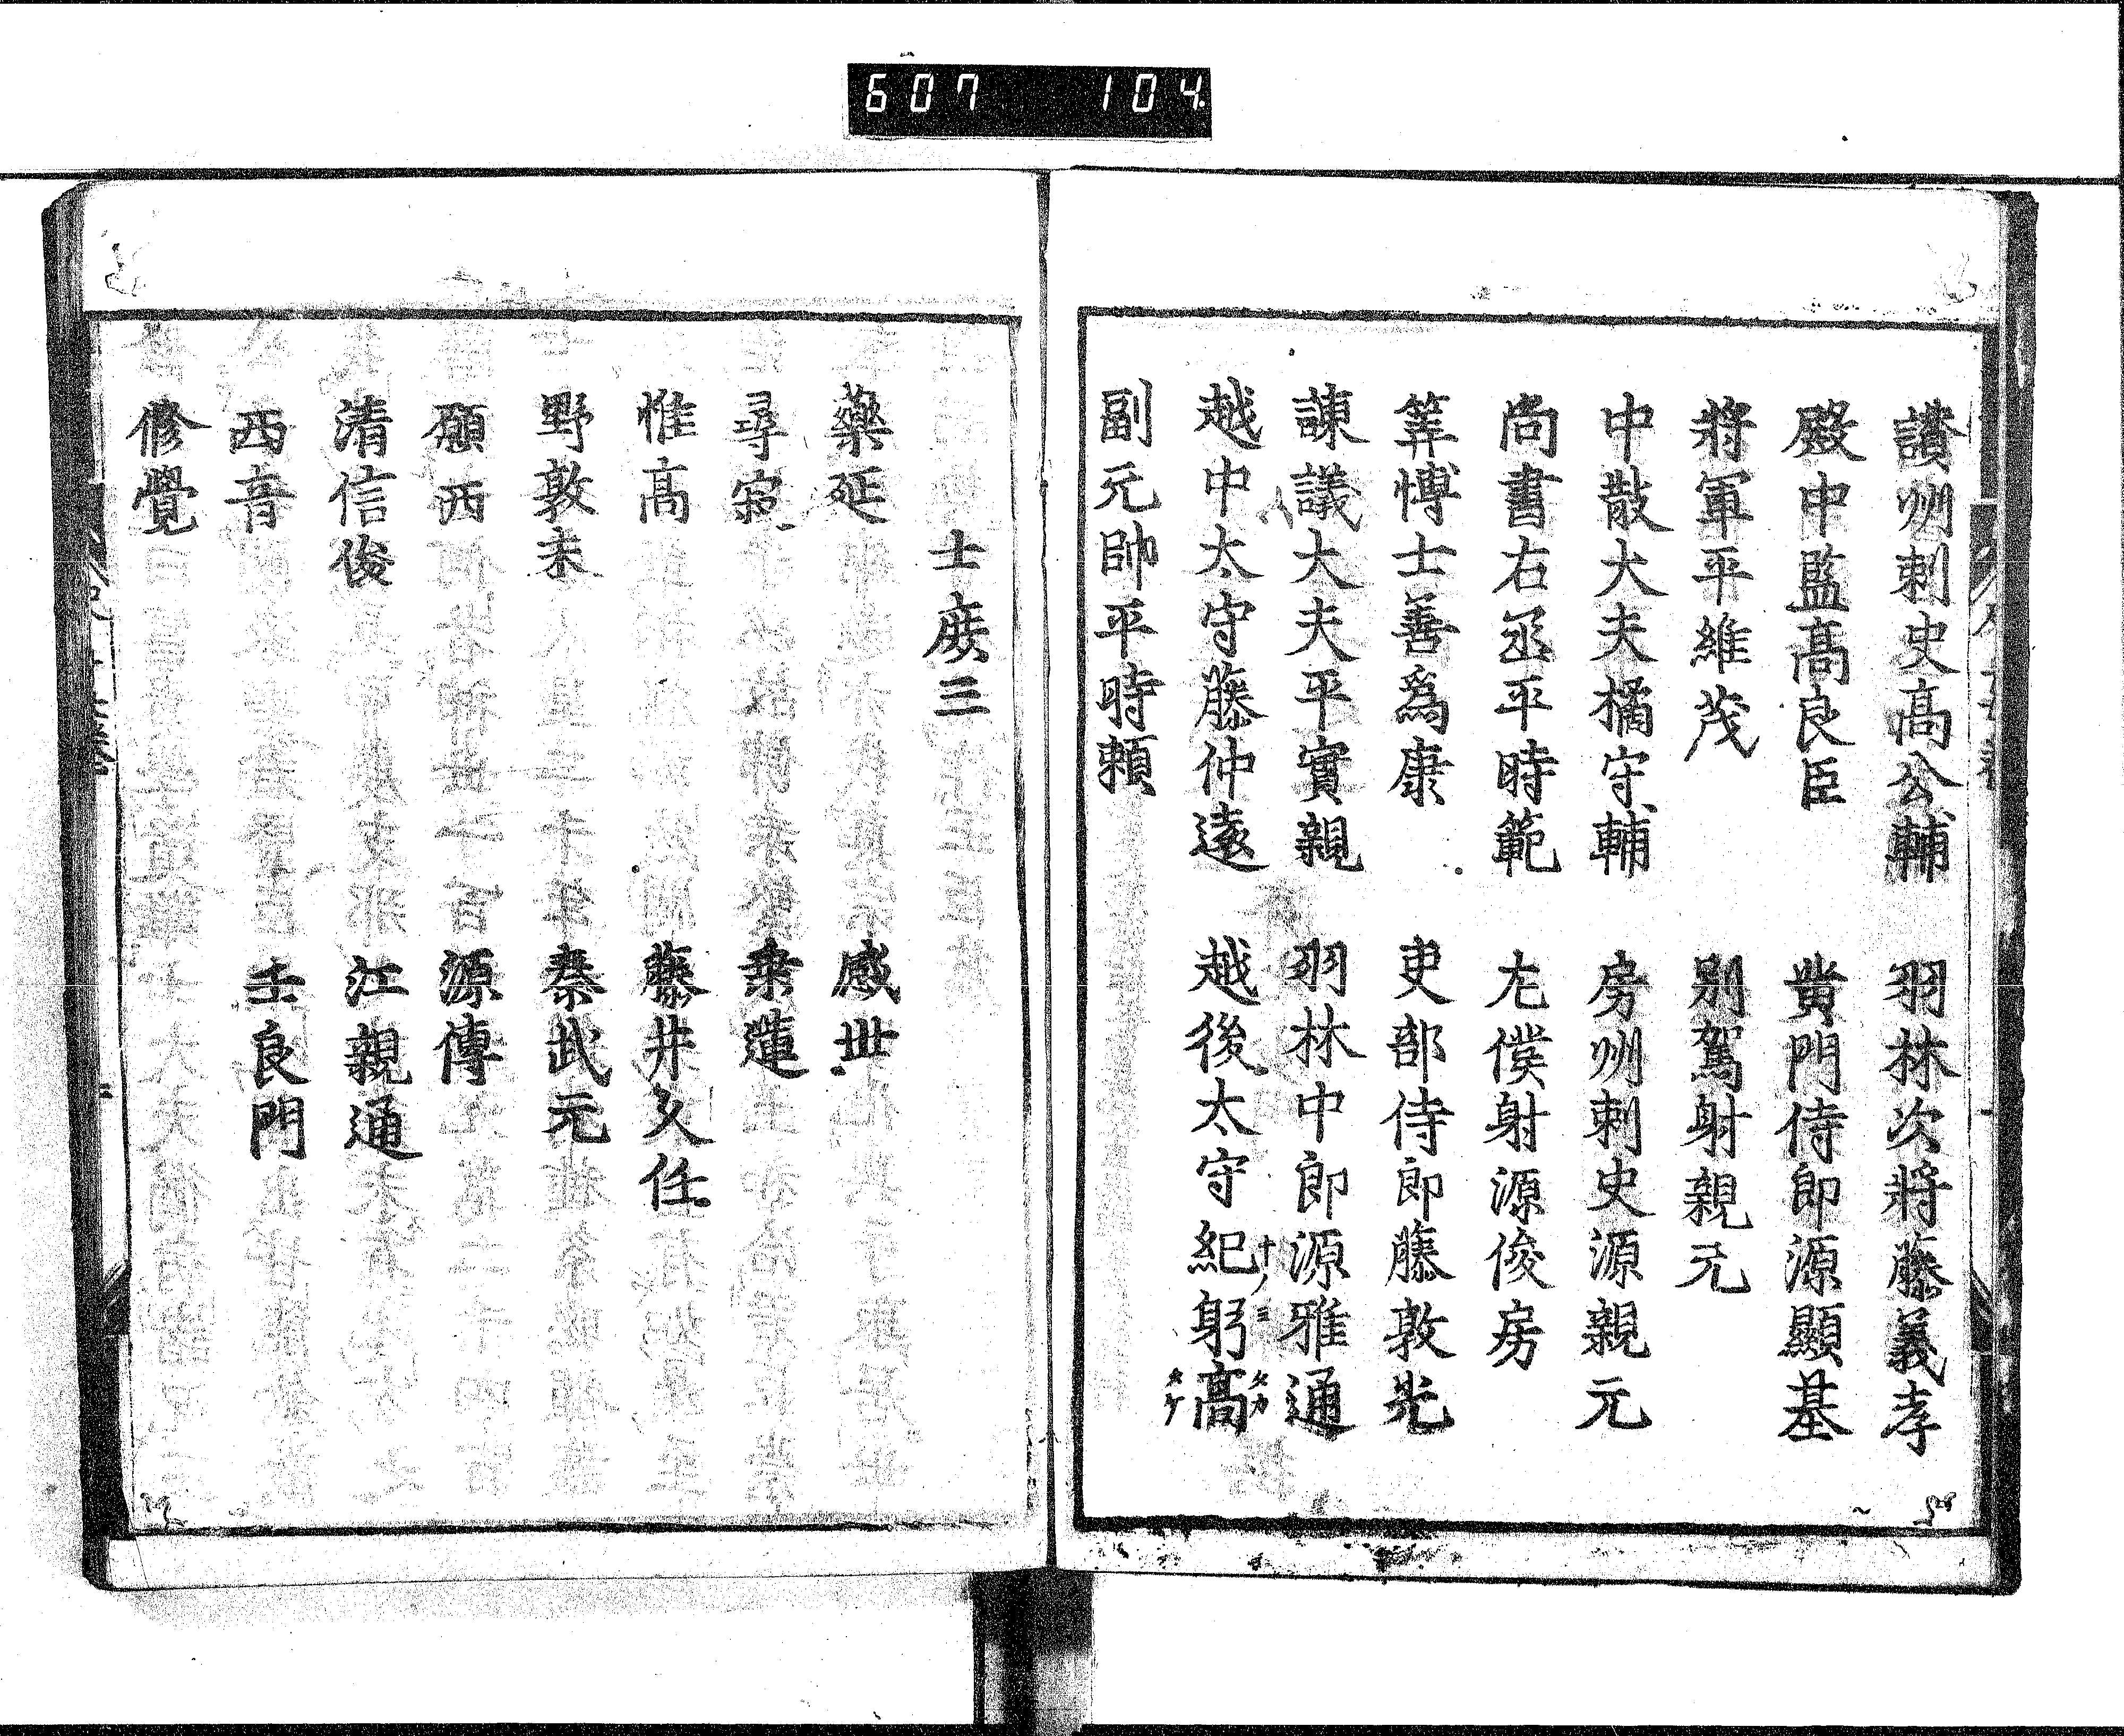 607 104
讃州刺史高公輔 羽林次將藤義孝
殿中監高良臣 黄門侍郎源顯基
將軍平維茂 別駕射親元
中散大夫橘守輔 房州刺史源親元
尚書右丞平時範 左僕射源俊房
筭博士善爲康 吏部侍郎藤敦光
諫議大夫平實親 羽林中郎源雅通
越中太守藤仲遠 越後太守紀躬高
副元帥平時頼
士庶三
藥延 感世
尋寂 乗蓮
惟高 藤井久任
野敦末 秦武元
願西 源傳
清信俊 江親通
西音 壬良門
修覺